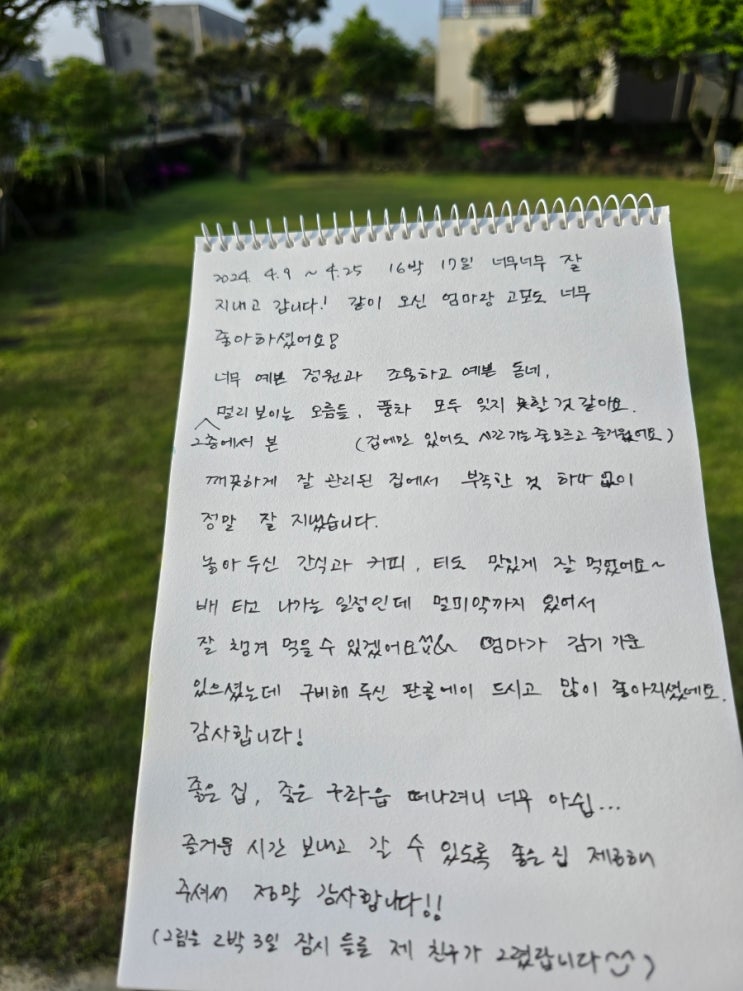 2024. 4.9 ~ 4.25 16박 17일 너무너무 잘
지내고 갑니다! 같이 오신 엄마랑 고모도 너무
좋아하셨어요!
너무 예쁜 정원과 조용하고 예쁜 동네,
멀리 보이는 오름들, 풍차 모두 잊지 못할 것 같아요.
2층에서 본 (집에만 있어도 시간 가는 줄 모르고 즐거웠어요)
깨끗하게 잘 관리된 집에서 부족한 것 하나 없이
정말 잘 지냈습니다.
놓아 두신 간식과 커피, 티도 맛있게 잘 먹었어요~
배 타고 나가는 일정인데 멀미약까지 있어서
잘 챙겨 먹을 수 있겠어요 엄마가 감기 기운
있으셨는데 구비해 두신 판콜에이 드시고 많이 좋아지셨네요.
감사합니다!
좋은 집, 좋은 구좌읍 떠나려니 너무 아쉽...
즐거운 시간 보내고 갈 수 있도록 좋은 집 제공해
주셔서 정말 감사합니다!!
(그림은 2박 3일 잠시 들른 제 친구가 그렸답니다^^)